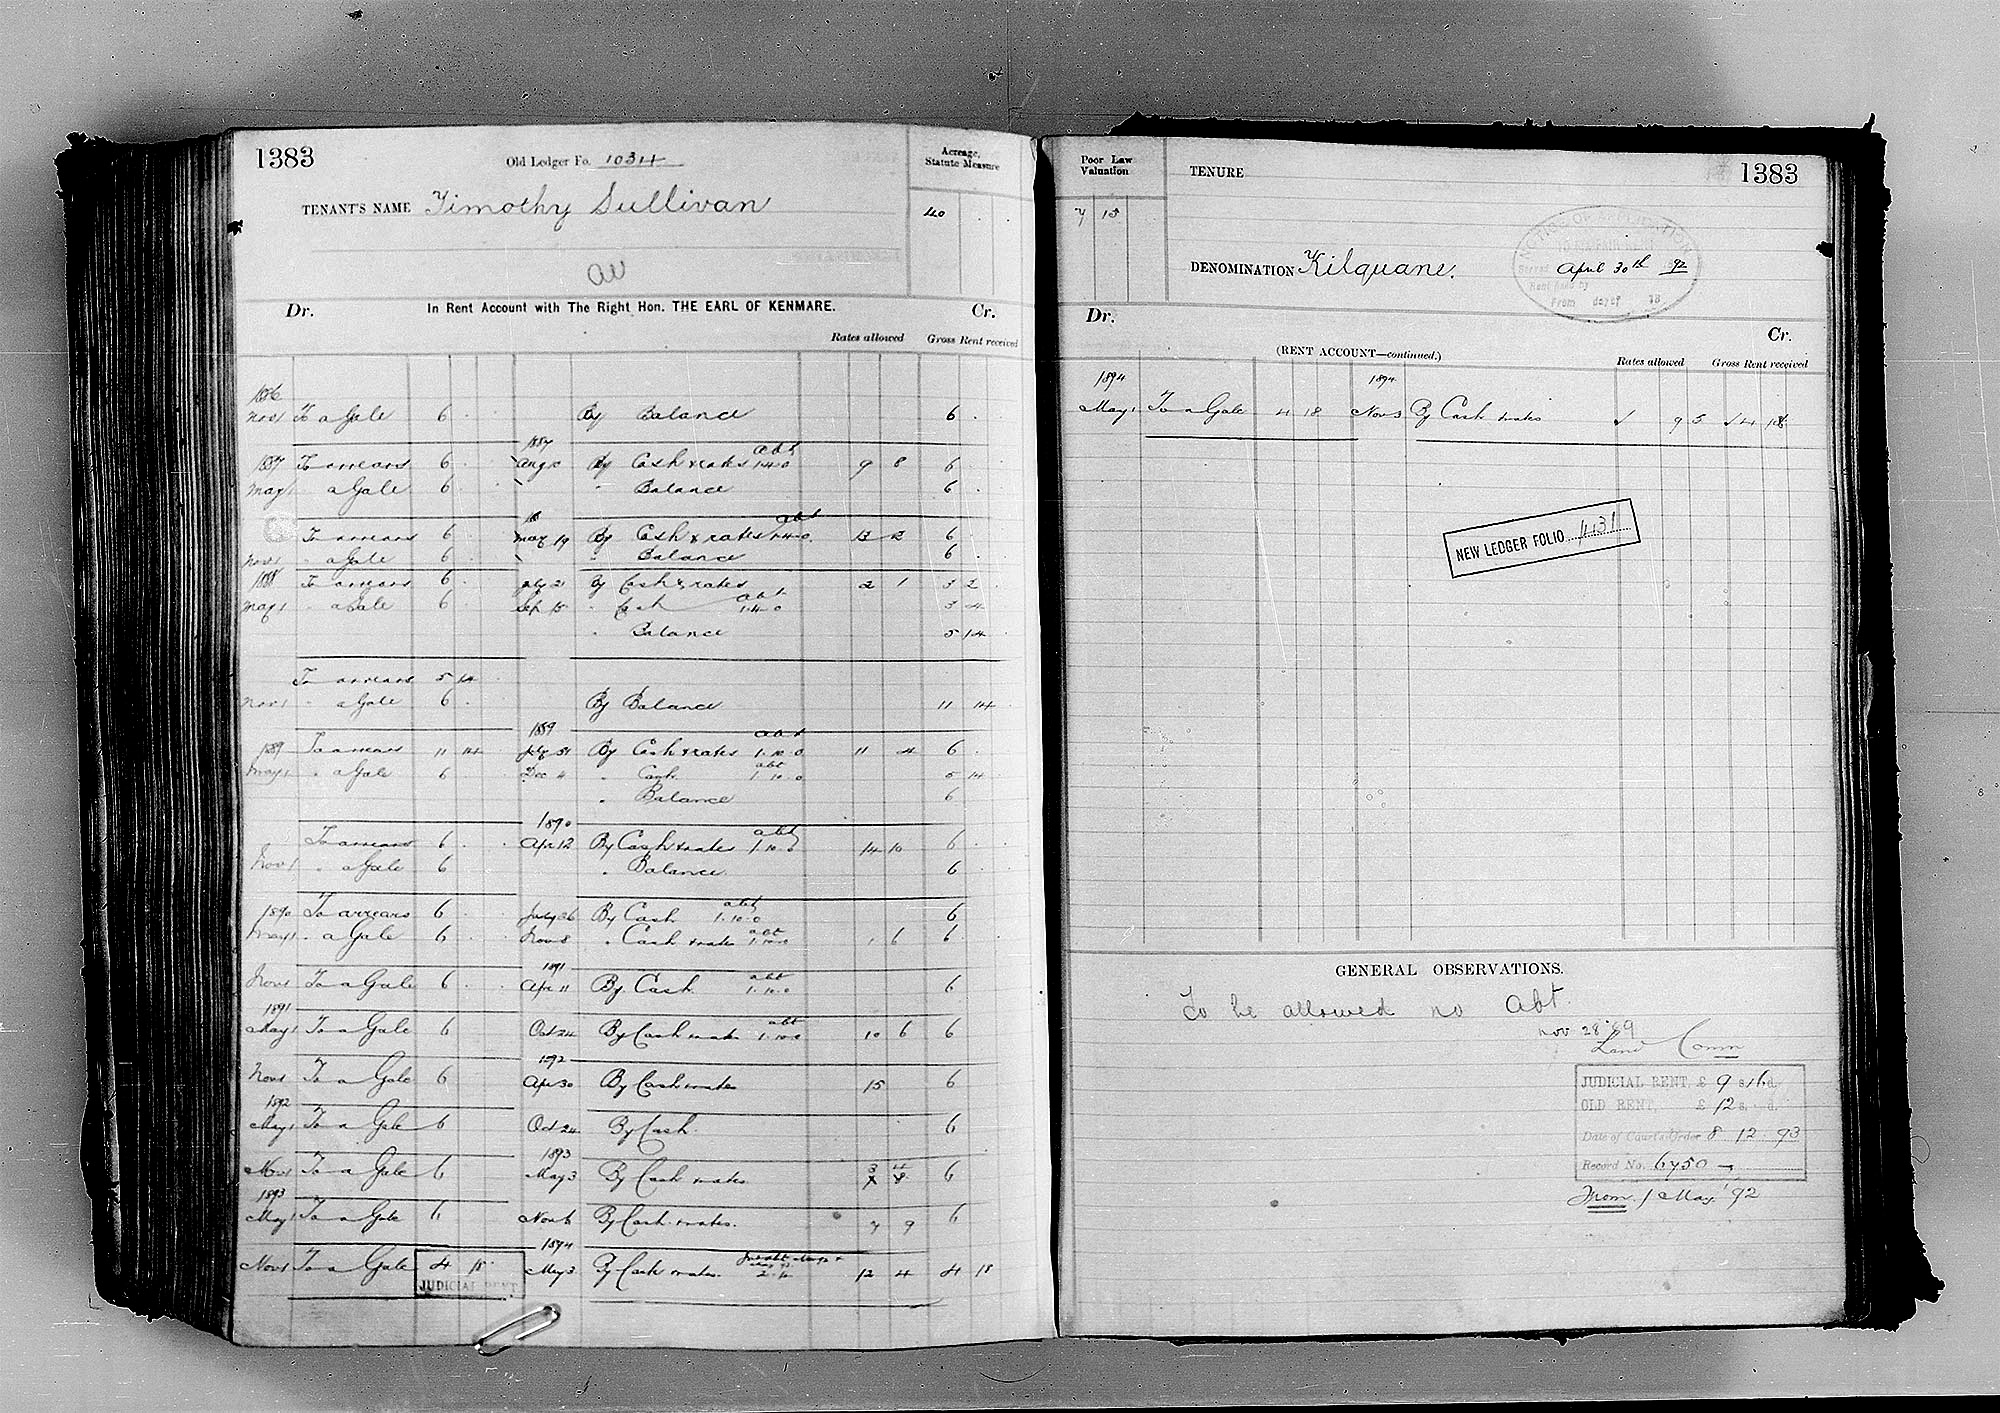 1383 Old Ledger Fo. 1034 Acreage, Statute Measure
TENANT'S NAME Timothy Sullivan 40
In Rent Account with The Right Hon. THE EARL OF KENMARE.
Dr. Cr.
Rates allowed Gross Rent received
1886
Nov 1 To a Gale 6 By Balance 6
1887
1887 To arrears 6 Aug 10 By Cash & rates abt 1.4.0 9 8 6
May 1 " a Gale 6 " Balance 6
To arrears 6 May 19 By Cash & rates abt 1.4.0 13 2 6
Nov 1 " a Gale 6 " Balance 6
1888 To arrears 6 July 21 By Cash & rates 2 1 3 2
May 1 " a Gale 6 Sep 15 " Cash abt 1.4.0 3 4
" Balance 5 14
To arrears 5 14
Nov 1 " a Gale 6 By Balance 11 14
1889
1889 To arrears 11 14 July 31 By Cash & rates abt 1.10.0 11 4 6
May 1 " a Gale 6 Dec 4 " Cash abt 1.10.0 5 14
" Balance 6
1890
To arrears 6 Apr 12 By Cash & rates abt 1.10.0 14 10 6
Nov 1 " a Gale 6 " Balance 6
1890 To arrears 6 July 26 By Cash abt 1.10.0 6
May 1 " a Gale 6 Nov 8 " Cash & rates abt 1.10.0 1 6 6
1891
Nov 1 To a Gale 6 Apr 11 By Cash abt 1.10.0 6
1891
May 1 To a Gale 6 Oct 24 By Cash & rates abt 1.10.0 10 6 6
1892
Nov 1 To a Gale 6 Apr 30 By Cash & rates 15 6
1892
May 1 To a Gale 6 Oct 24 By Cash 6
1893
Nov 1 To a Gale 6 May 3 By Cash & rates 3 4 6
1893
May 1 To a Gale 6 Nov 6 By Cash & rates 7 9 6
1894
Nov 1 To a Gale 4 18 May 3 By Cash & rates 12 4 4 18
JUDICIAL RENT
Poor Law Valuation TENURE 1383
7 15
DENOMINATION Kilquane.
NOTICE OF APPLICATION
TO FIX FAIR RENT
Served April 30th 92
From day of 18
Dr. Cr.
(RENT ACCOUNT—continued.) Rates allowed Gross Rent received
1894 1894
May 1 To a Gale 4 18 Nov 3 By Cash & rates 9 5 4 18
NEW LEDGER FOLIO 1131
GENERAL OBSERVATIONS.
To be allowed no Abt.
Nov 28 '89
Land Comn
JUDICIAL RENT £ 9 s. 16 d.
OLD RENT £ 12 s. d.
Date of Court's Order 8 12 93
Record No. 6750
From 1 May '92